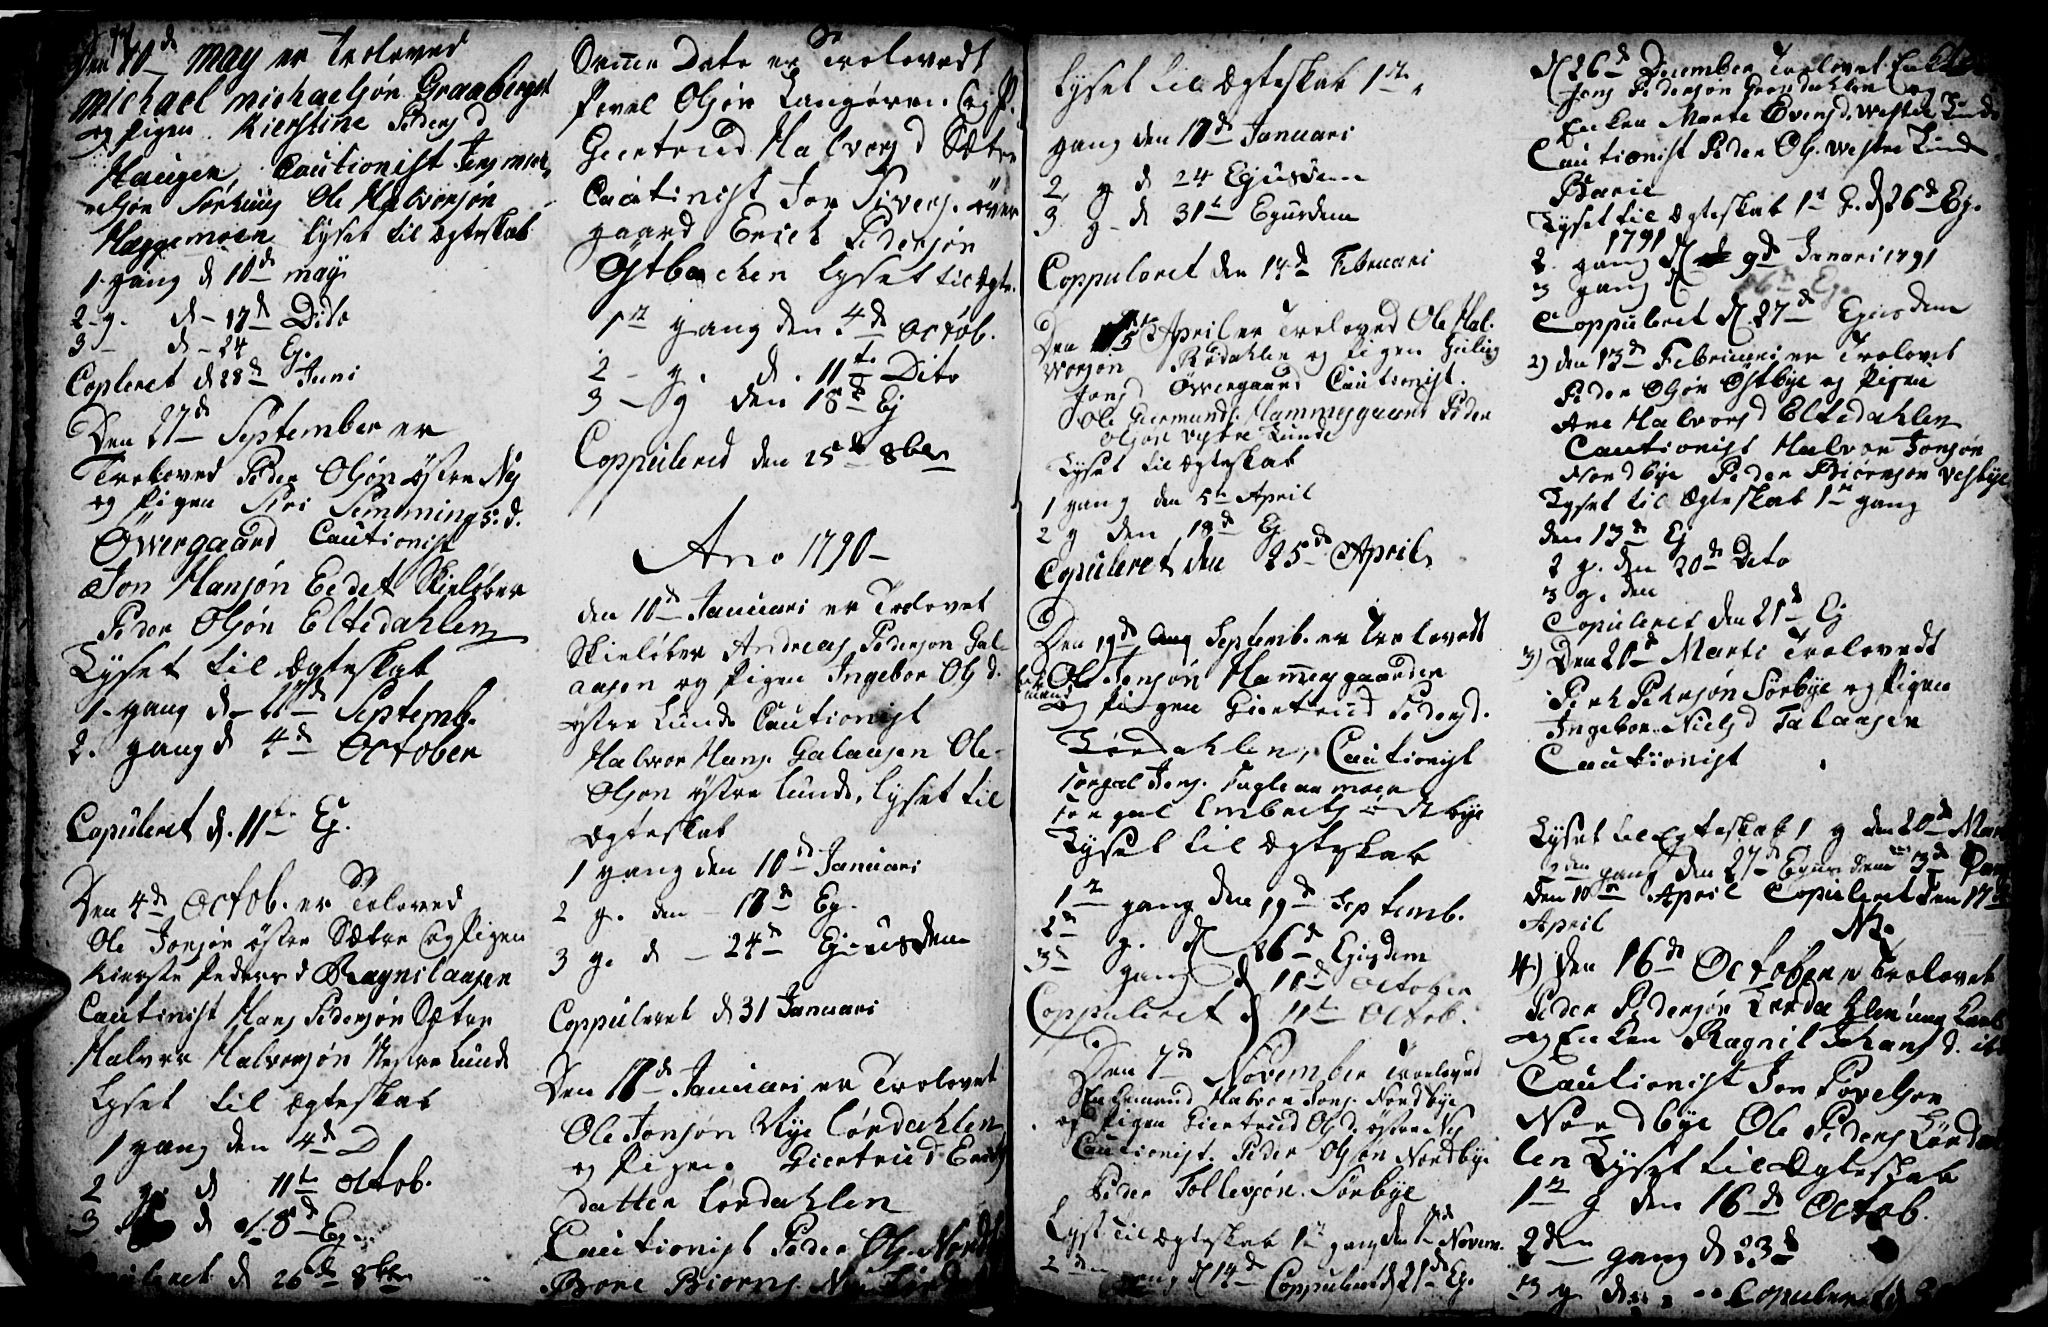 Den 10de may er Troloved
Michael Michaelsøn Graaberget
og Pigen Kierstine Peders d
Haugen, Cautionist Jens mich
elsøn Sørhuus Ole Halvorsøn
Haggemoen lyset til Ægteskab
1. gang d 10de may
2 g. d 17de Dito
3 - d - 24 Ej.
Copleret d 28de Juni
Den 27de September er
Troloved Peder Olsøn østre Nÿ
og Pigen Siri Semmings. d.
Øwergaard Cautionist
Jon Hansøn Eedet Skieløber
Peder Olsøn Eltedahlen
Lyset til Ægteskab
1. gang d Septemb.
2. gang d 4de October
Copuleret d. 11te Ej.
Den 4de Octob. er Troloved
Ole Jonsøn østre Sætre og Pigen
Kierste Peders d Ragnilaasen
Cautinist Hans Pedersøn Sætre
Halvor Halvorsøn Vestre Lunde
Lyset til Ægteskab
1 gang den 4de D
2 g. d 11te Octob.
3 d 18de Ej.
d 26de 8ber
Samme Dato er Trolovedt
Povel Olsøn Langøren og P.
Giertrud Halvors d Sætre
Cautinist Jon Sivers. øver
gaard Erich Pedersøn
Østbechen lyset til Ægte.
1te gang den 4de Octob.
2 - g. d. 11te Dito
3 - g den 18de Ej
Coppulered den 25de 8ber
Ano 1790
den 10de Januari er Trolovet
Skieløber Andreas Pedersøn Gal
aasen og Pigen Ingebor Ols d.
østre Lunde Cautionist
Halvor Hans. Galaasen Ole
Olsøn østre Lunde, lyset til
Ægteskab
1 gang den 10de Januari
2 g. den 17de Ej.
3 g. d - 24de Ejusdem
Coppuleret d 31 Januari
Den 17de Januari er Trolovet
Ole Jonsøn Nye Lørdahlen
og Pigen Giertrud Erichs
datter Lørdahlen
Cautionist Peder Ols. Nord
Baare Biørns.
Lyset til Ægteskab 1te
gang den 17de Januari
2 g d 24 Ejusdem
3 g d 31te Ejusdem
Coppuleret den 14de Februari
Den 5te April er Troloved Ole Hal-
vorsøn Rødahlen og Pigen
Jons d Øwergaard Cautionist.
Ole Giermunds. Hammersgaard Peder
Olsøn Vestre Lunde
Lyset til Ægteskab
1 gang den 5te April
2 g den 18de Ej
Copuleret den 25de April
Den 19de Septemb. er Trolovedt
Ole Jonsøn Hammersgaarden
og Pigen Giertrud Peders d.
Lørdahlen, Cautionist
Torgal Jons. Fugleaamoen
Torgal Embrets østbye
Lyset til Ægteskab
1te gang den 19de Septemb.
2de g. d 26de Ejusdem
3de gang d October
Coppuleret d 11te Octob.
Den 7de November Troloved
Enkemand Halvor Jons. Nordbye
og Pigen Giertrud Ols d. østre Nÿ
Cautionist. Peder Olsøn Nordbye
Peder Tollevsøn Sørbye
Lyst til Ægteskab 1te gang den 7de Novem.
2den gang d 14de Coppuleret d 21de Ej.
d 26de December Trolovet
Jens Pedersøn og
Enken Marte Evens d. Westre Lunde
Cautionist Peder Ols. Westre Lunde
Lyset til Ægteskab 1te g. d 26de Ej.
1791
2. gang d 9de Januari 1791
3 gang d 16de Ej.
Coppuleret d 27de Ejusdem
2) den 13de Februari er Trolovet
Peder Olsøn Østbye og Pigen
Ane Halvors d Eltedahlen
Cautionist Halvor Jonsøn
Nordbye Peder Biørnsøn Vestbye
Lyset til Ægteskab 1te gang
den 13de Ej
2 g. den 20de Dito
3 g. den
Copuleret den 21de Ej
3) Den 20de Marti Trolovedt
Sørbye og Pigen
Ingebor Niels d Galaasen
Cautionist
Lyset til Ægteskab 1 g den 20de Mar
2den gang den 27de Ejusdem 3de
den 10de April Copuleret den 17de
April
4) Den 16de October er Trolovet
Peder Pedersøn Lørdahlen ung Karl
og Enken Ragnil Johans d.
Cautionist Jon Povelsøn
Nordbye Ole Peders Lørdah
len Lyset til Ægteskab
1te g den 16de Octob.
2den gang d 23de
3 g d Copuleret d